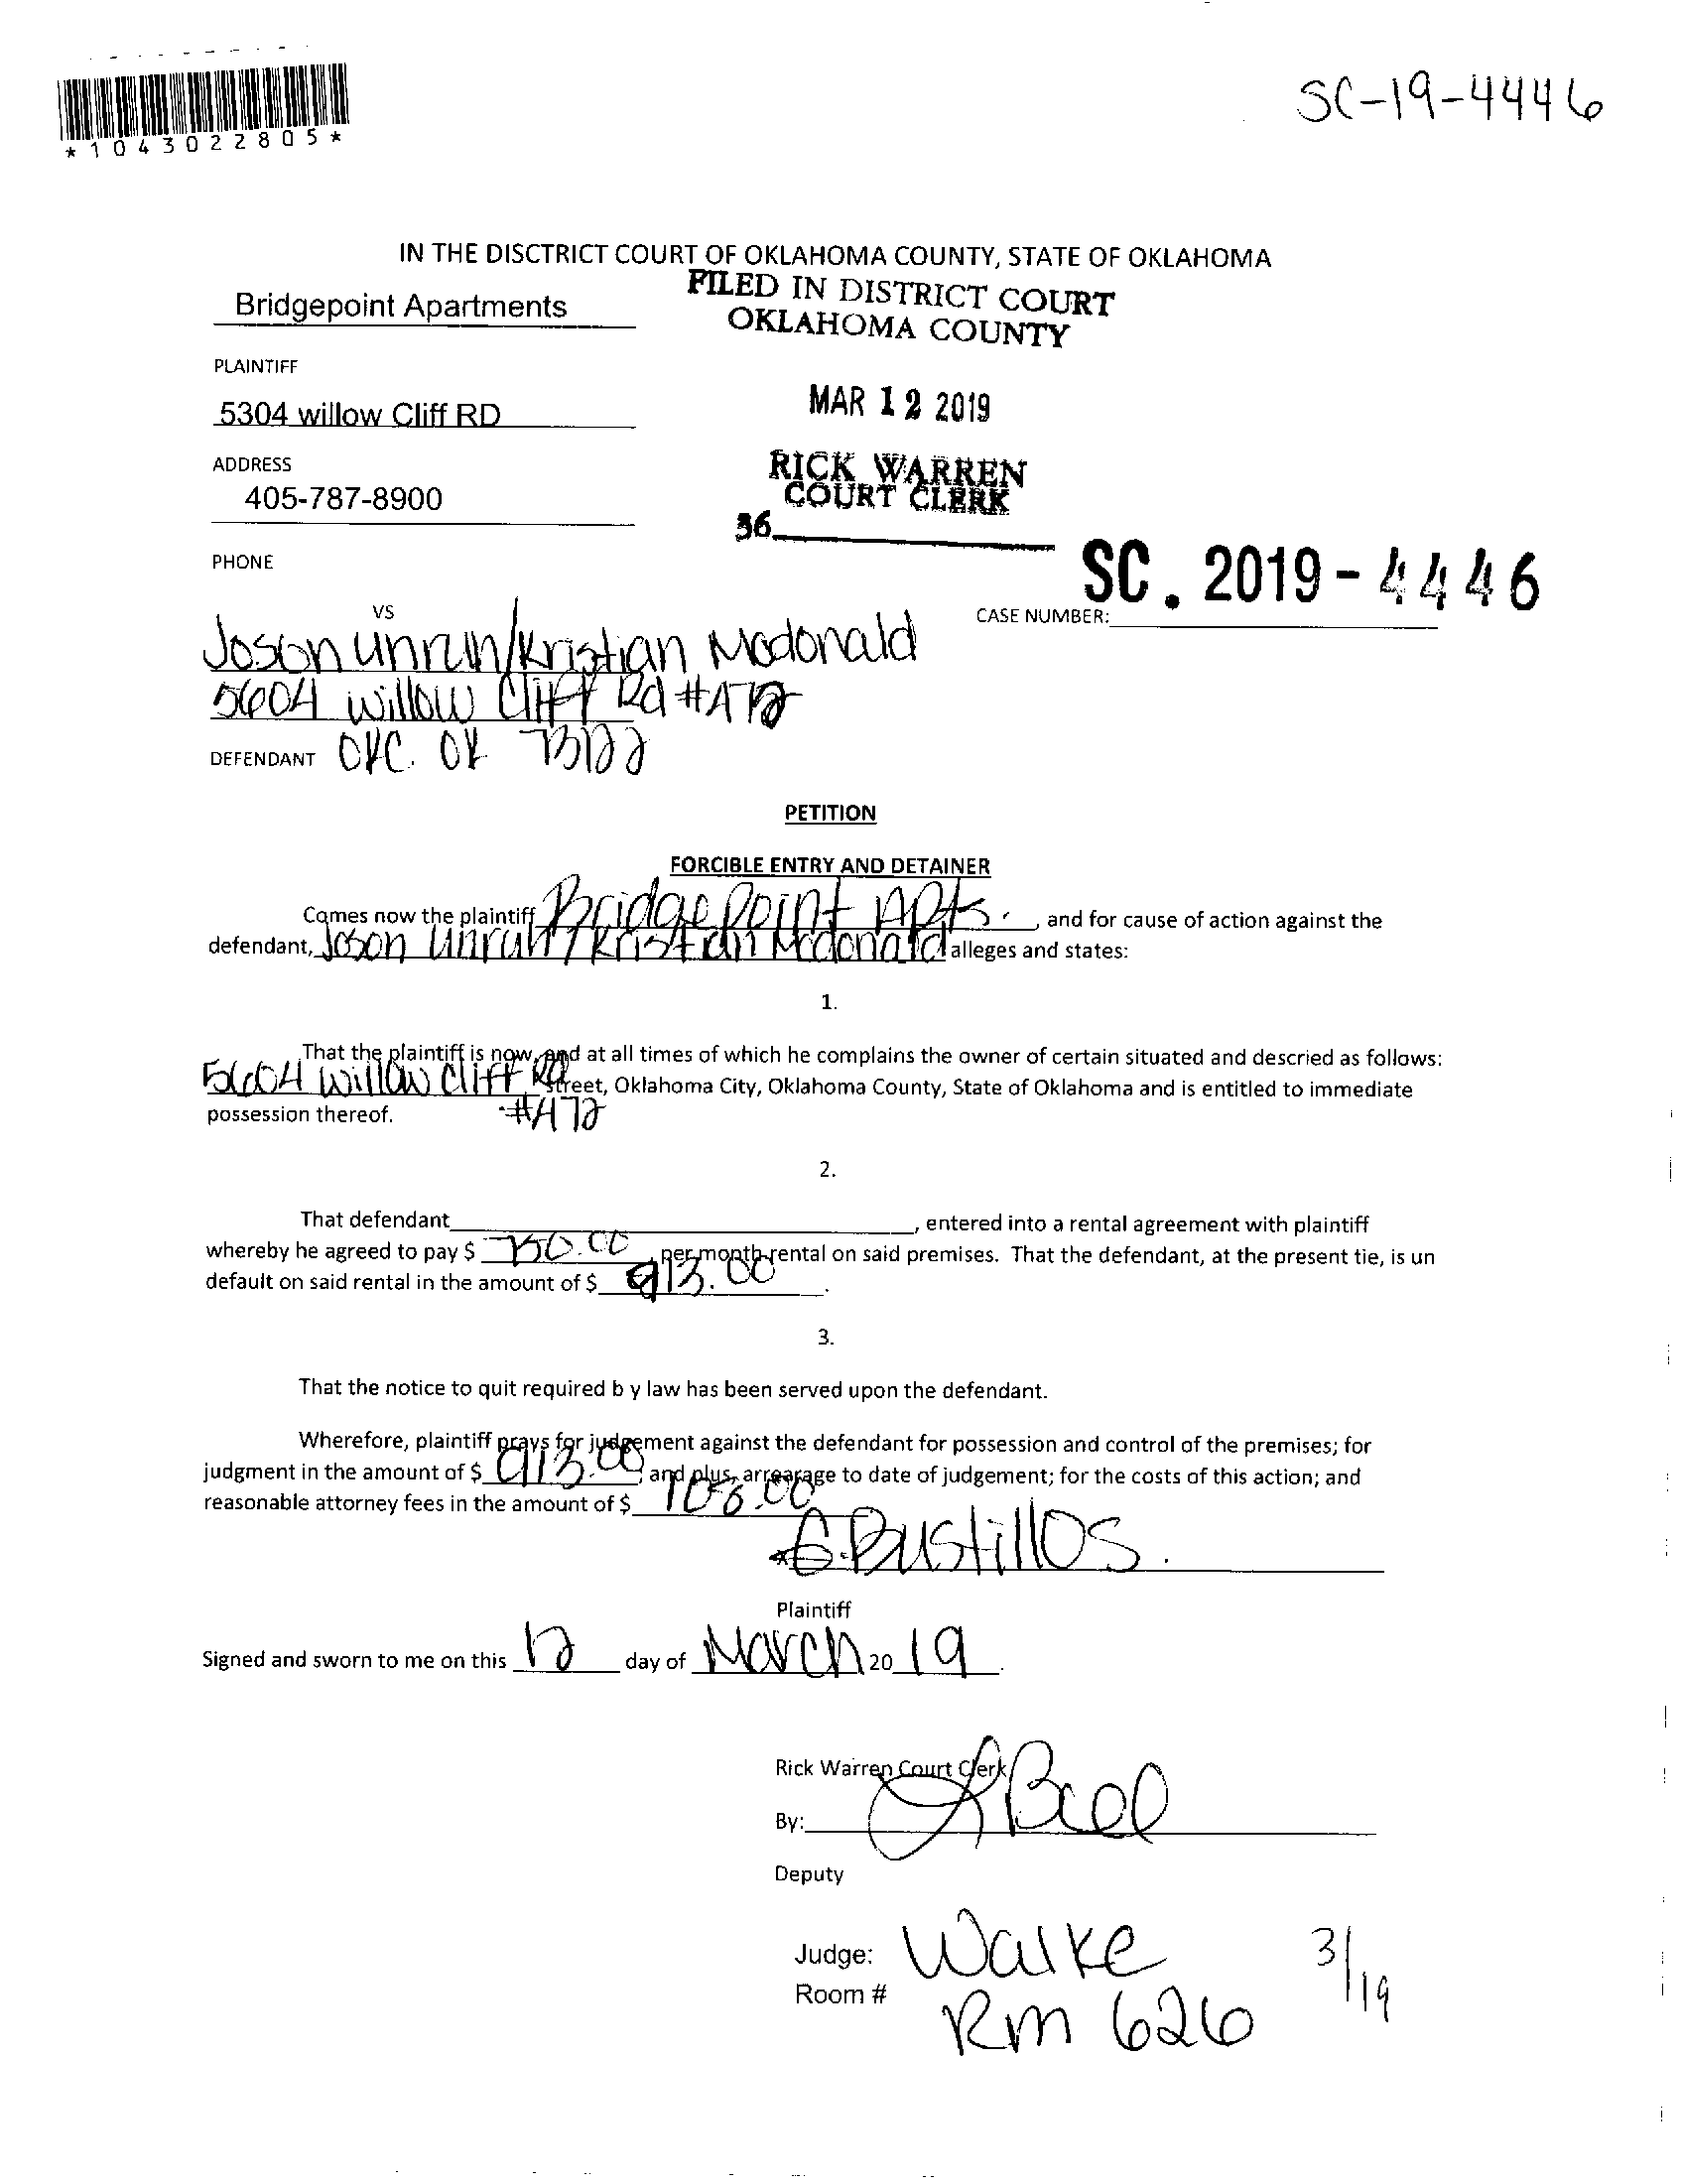 SC-19-4446
*1043022805*
IN THE DISCTRICT COURT OF OKLAHOMA COUNTY, STATE OF OKLAHOMA
FILED IN DISTRICT COURT
OKLAHOMA COUNTY
Bridgepoint Apartments
PLAINTIFF
MAR 12 2019
5304 willow Cliff RD
ADDRESS
RICK WARREN
COURT CLERK
405-787-8900
36
PHONE
SC. 2019-4446
CASE NUMBER:
VS
Jason unruh/Kristian Mcdonald
5604 Willow Cliff Rd #A72
DEFENDANT OKC. OK 73122
PETITION
FORCIBLE ENTRY AND DETAINER
Comes now the plaintiff Bridge Point Apts. , and for cause of action against the
defendant, Jason Unruh / Kristian Mcdonald alleges and states:
1.
That the plaintiff is now, and at all times of which he complains the owner of certain situated and descried as follows:
5604 Willow Cliff Rd Street, Oklahoma City, Oklahoma County, State of Oklahoma and is entitled to immediate
possession thereof. #A72
2.
That defendant , entered into a rental agreement with plaintiff
whereby he agreed to pay $ 750.00 , per month rental on said premises. That the defendant, at the present tie, is un
default on said rental in the amount of $ 913.00 .
3.
That the notice to quit required b y law has been served upon the defendant.
Wherefore, plaintiff prays for judgement against the defendant for possession and control of the premises; for
judgment in the amount of $ 913.00 ; and plus, arrearage to date of judgement; for the costs of this action; and
reasonable attorney fees in the amount of $
G. Bustillos.
Plaintiff
Signed and sworn to me on this 12 day of March 20 19 .
Rick Warren Court Clerk
By:
Deputy
Judge: Walke 3/19
Room # Rm 626